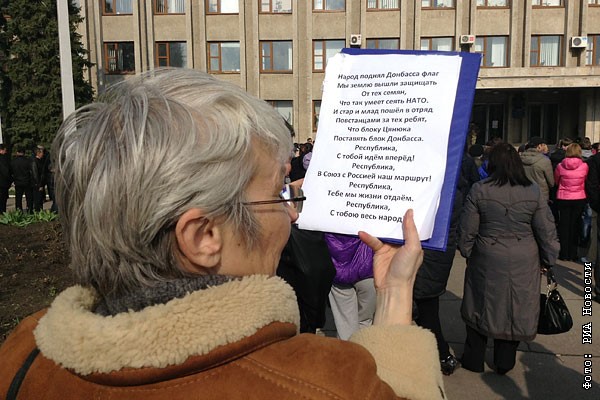 Народ поднял Донбасса флаг
Мы землю вышли защищать
От тех семян,
Что так умеет сеять НАТО.
И стар и млад пошёл в отряд
Повстанцами за тех ребят,
Что блоку Цянюка
Поставять блок Донбасса.
Республика,
С тобой идём вперёд!
Республика,
В Союз с Россией наш маршрут!
Республика,
Тебе мы жизни отдаём.
Республика,
С тобою весь народ!
Фото: РИА Новости